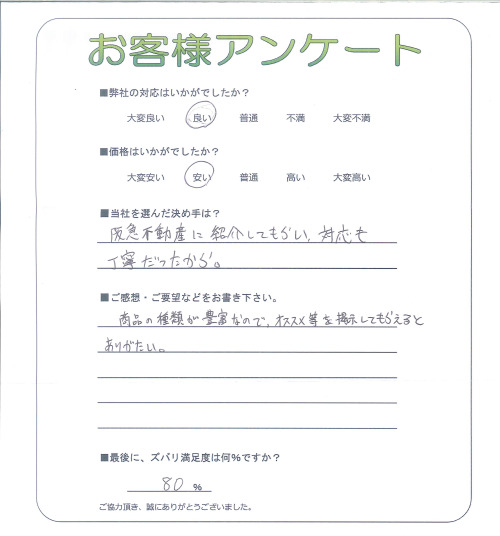 お客様アンケート
■弊社の対応はいかがでしたか？
大変良い 良い 普通 不満 大変不満
■価格はいかがでしたか？
大変安い 安い 普通 高い 大変高い
■当社を選んだ決め手は？
阪急不動産に紹介してもらい、対応も
丁寧だったから。
■ご感想・ご要望などをお書き下さい。
商品の種類が豊富なので、オススメ等を掲示してもらえると
ありがたい。
■最後に、ズバリ満足度は何%ですか？
80 %
ご協力頂き、誠にありがとうございました。